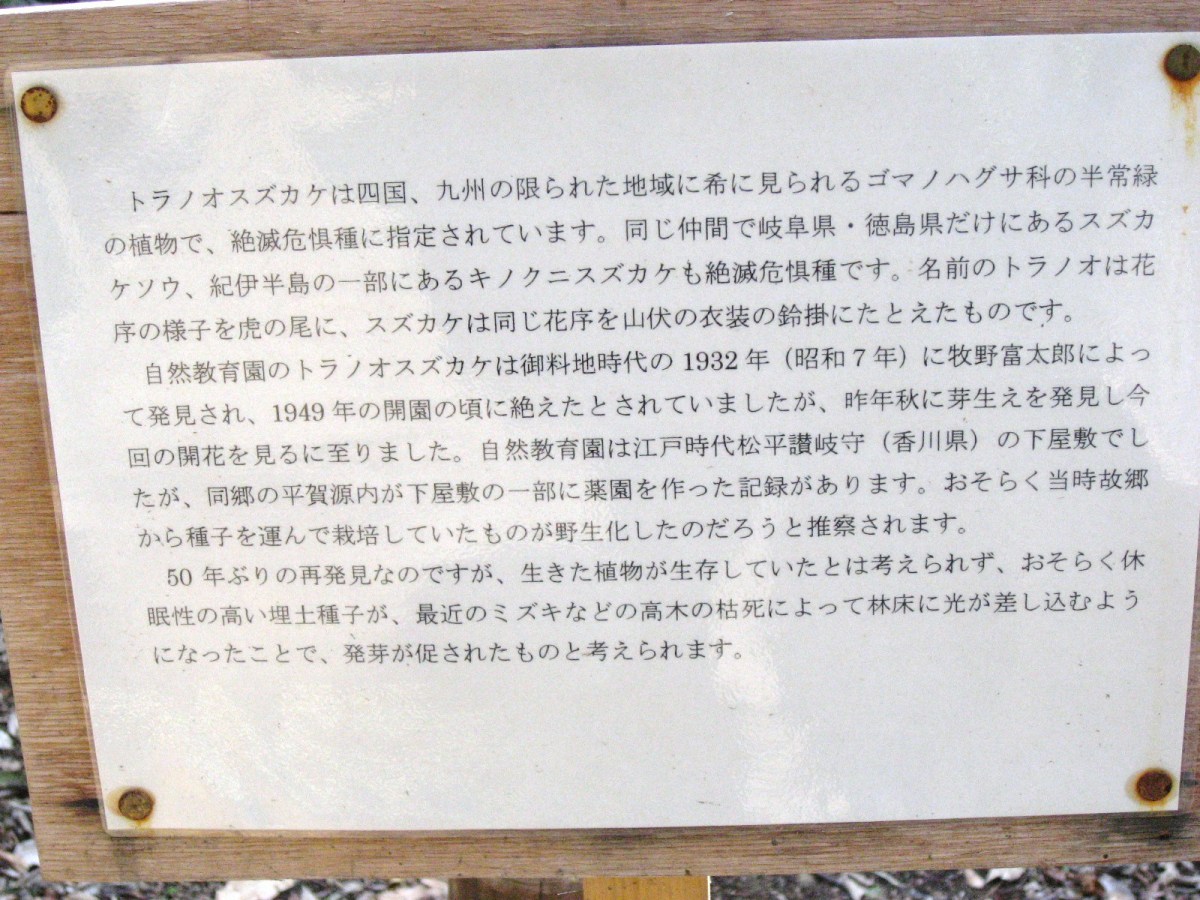 トラノオスズカケは四国、九州の限られた地域に希に見られるゴマノハグサ科の半常緑
の植物で、絶滅危惧種に指定されています。同じ仲間で岐阜県・徳島県だけにあるスズカ
ケソウ、紀伊半島の一部にあるキノクニスズカケも絶滅危惧種です。名前のトラノオは花
序の様子を虎の尾に、スズカケは同じ花序を山伏の衣装の鈴掛にたとえたものです。
自然教育園のトラノオスズカケは御料地時代の1932年（昭和7年）に牧野富太郎によっ
て発見され、1949年の開園の頃に絶えたとされていましたが、昨年秋に芽生えを発見し今
回の開花を見るに至りました。自然教育園は江戸時代松平讃岐守（香川県）の下屋敷でし
たが、同郷の平賀源内が下屋敷の一部に薬園を作った記録があります。おそらく当時故郷
から種子を運んで栽培していたものが野生化したのだろうと推察されます。
50年ぶりの再発見なのですが、生きた植物が生存していたとは考えられず、おそらく休
眠性の高い埋土種子が、最近のミズキなどの高木の枯死によって林床に光が差し込むよう
になったことで、発芽が促されたものと考えられます。